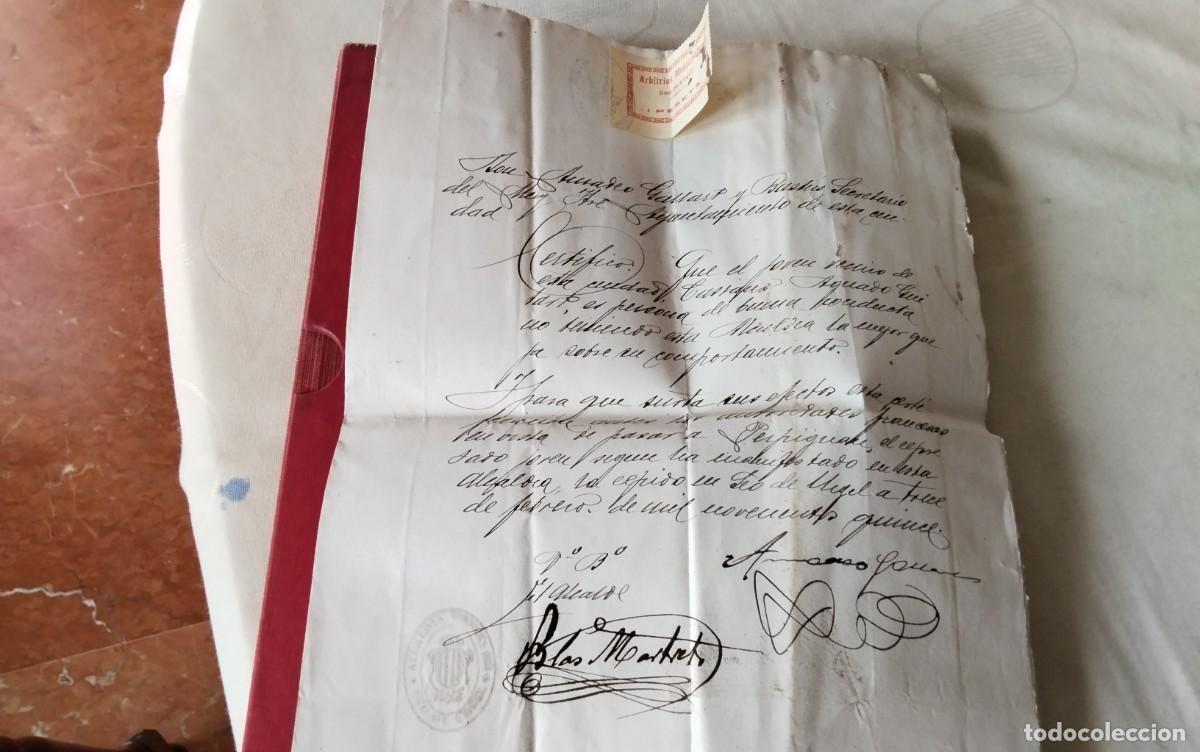 Arbitrios
Don Amadeo Gallart y Bustes Secretario
del Muy Itre Ayuntamiento de esta ciu-
dad
Certifico: Que el joven vecino de
esta ciudad Aguado Gui
tart, es persona de buena conducta
no teniendo esta Alcaldia la mejor que
ja sobre su comportamiento.
Y para que surta sus efectos esta certi
las autoridades francesas
en vista de pasar a Perpignan, el expre
sado joven segun ha manifestado en esta
Alcaldia, la expido en Seo de Urgel a trece
de febrero de mil novecientos quince.
Vº Bº
El Alcalde
Amadeo Gallart
Blas
ALCALDIA
todocoleccion